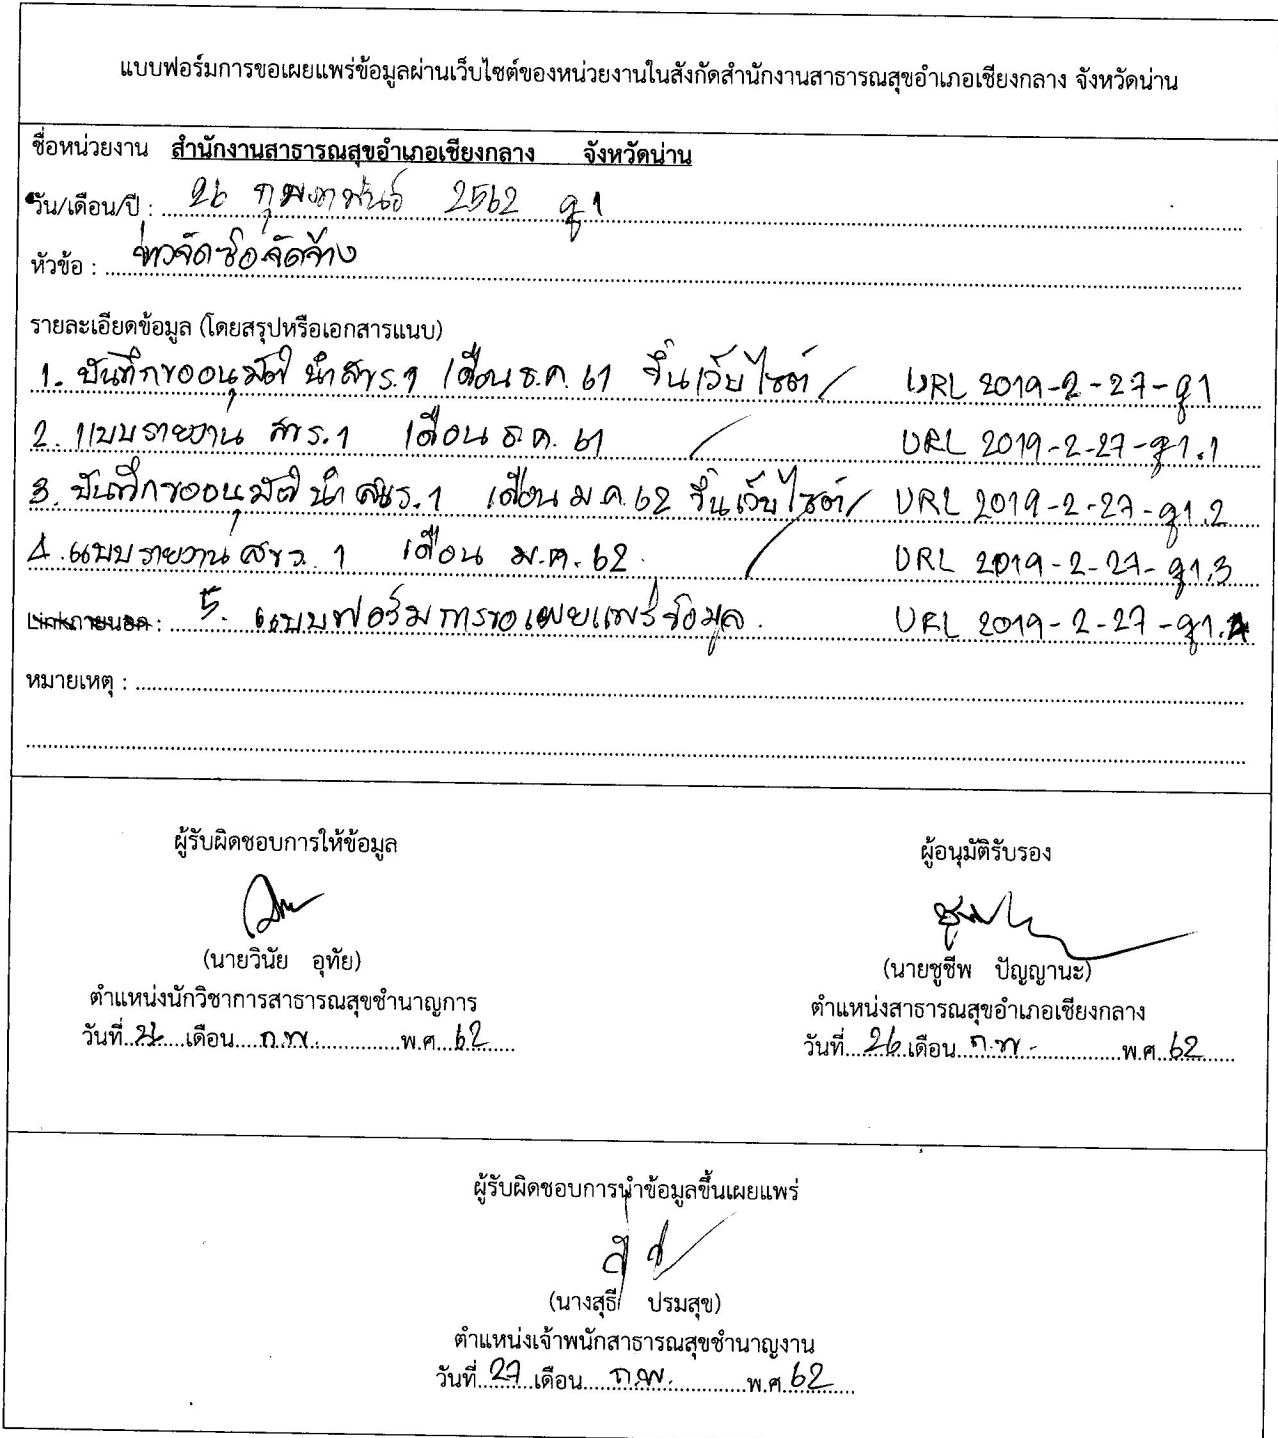 แบบฟอร์มการขอเผยแพร่ข้อมูลผ่านเว็บไซต์ของหน่วยงานในสังกัดสำนักงานสาธารณสุขอำเภอเชียงกลาง จังหวัดน่าน
ชื่อหน่วยงาน สำนักงานสาธารณสุขอำเภอเชียงกลาง จังหวัดน่าน
วัน/เดือน/ปี : 26 กุมภาพันธ์ 2562
หัวข้อ : ข่าวจัดซื้อจัดจ้าง
รายละเอียดข้อมูล (โดยสรุปหรือเอกสารแนบ)
1. บันทึกขออนุมัติ นำ สขร.1 เดือน ธ.ค. 61 ขึ้นเว็บไซต์ / URL 2019-2-27-ฐ1
2. แบบรายงาน สขร.1 เดือน ธ.ค. 61 / URL 2019-2-27-ฐ1.1
3. บันทึกขออนุมัติ นำ สขร.1 เดือน ม.ค. 62 ขึ้นเว็บไซต์ / URL 2019-2-27-ฐ1.2
4. แบบรายงาน สขร. 1 เดือน ม.ค. 62. / URL 2019-2-27-ฐ1.3
Linkภายนอก : 5. แบบฟอร์มการขอเผยแพร่ข้อมูล. URL 2019-2-27-ฐ1.4
หมายเหตุ :
ผู้รับผิดชอบการให้ข้อมูล ผู้อนุมัติรับรอง
(นายวินัย อุทัย) (นายชูชีพ ปัญญานะ)
ตำแหน่งนักวิชาการสาธารณสุขชำนาญการ ตำแหน่งสาธารณสุขอำเภอเชียงกลาง
วันที่ 26 เดือน ก.พ. พ.ศ. 62 วันที่ 26 เดือน ก.พ. พ.ศ. 62
ผู้รับผิดชอบการนำข้อมูลขึ้นเผยแพร่
(นางสุธี ปรมสุข)
ตำแหน่งเจ้าพนักสาธารณสุขชำนาญงาน
วันที่ 27 เดือน ก.พ. พ.ศ. 62